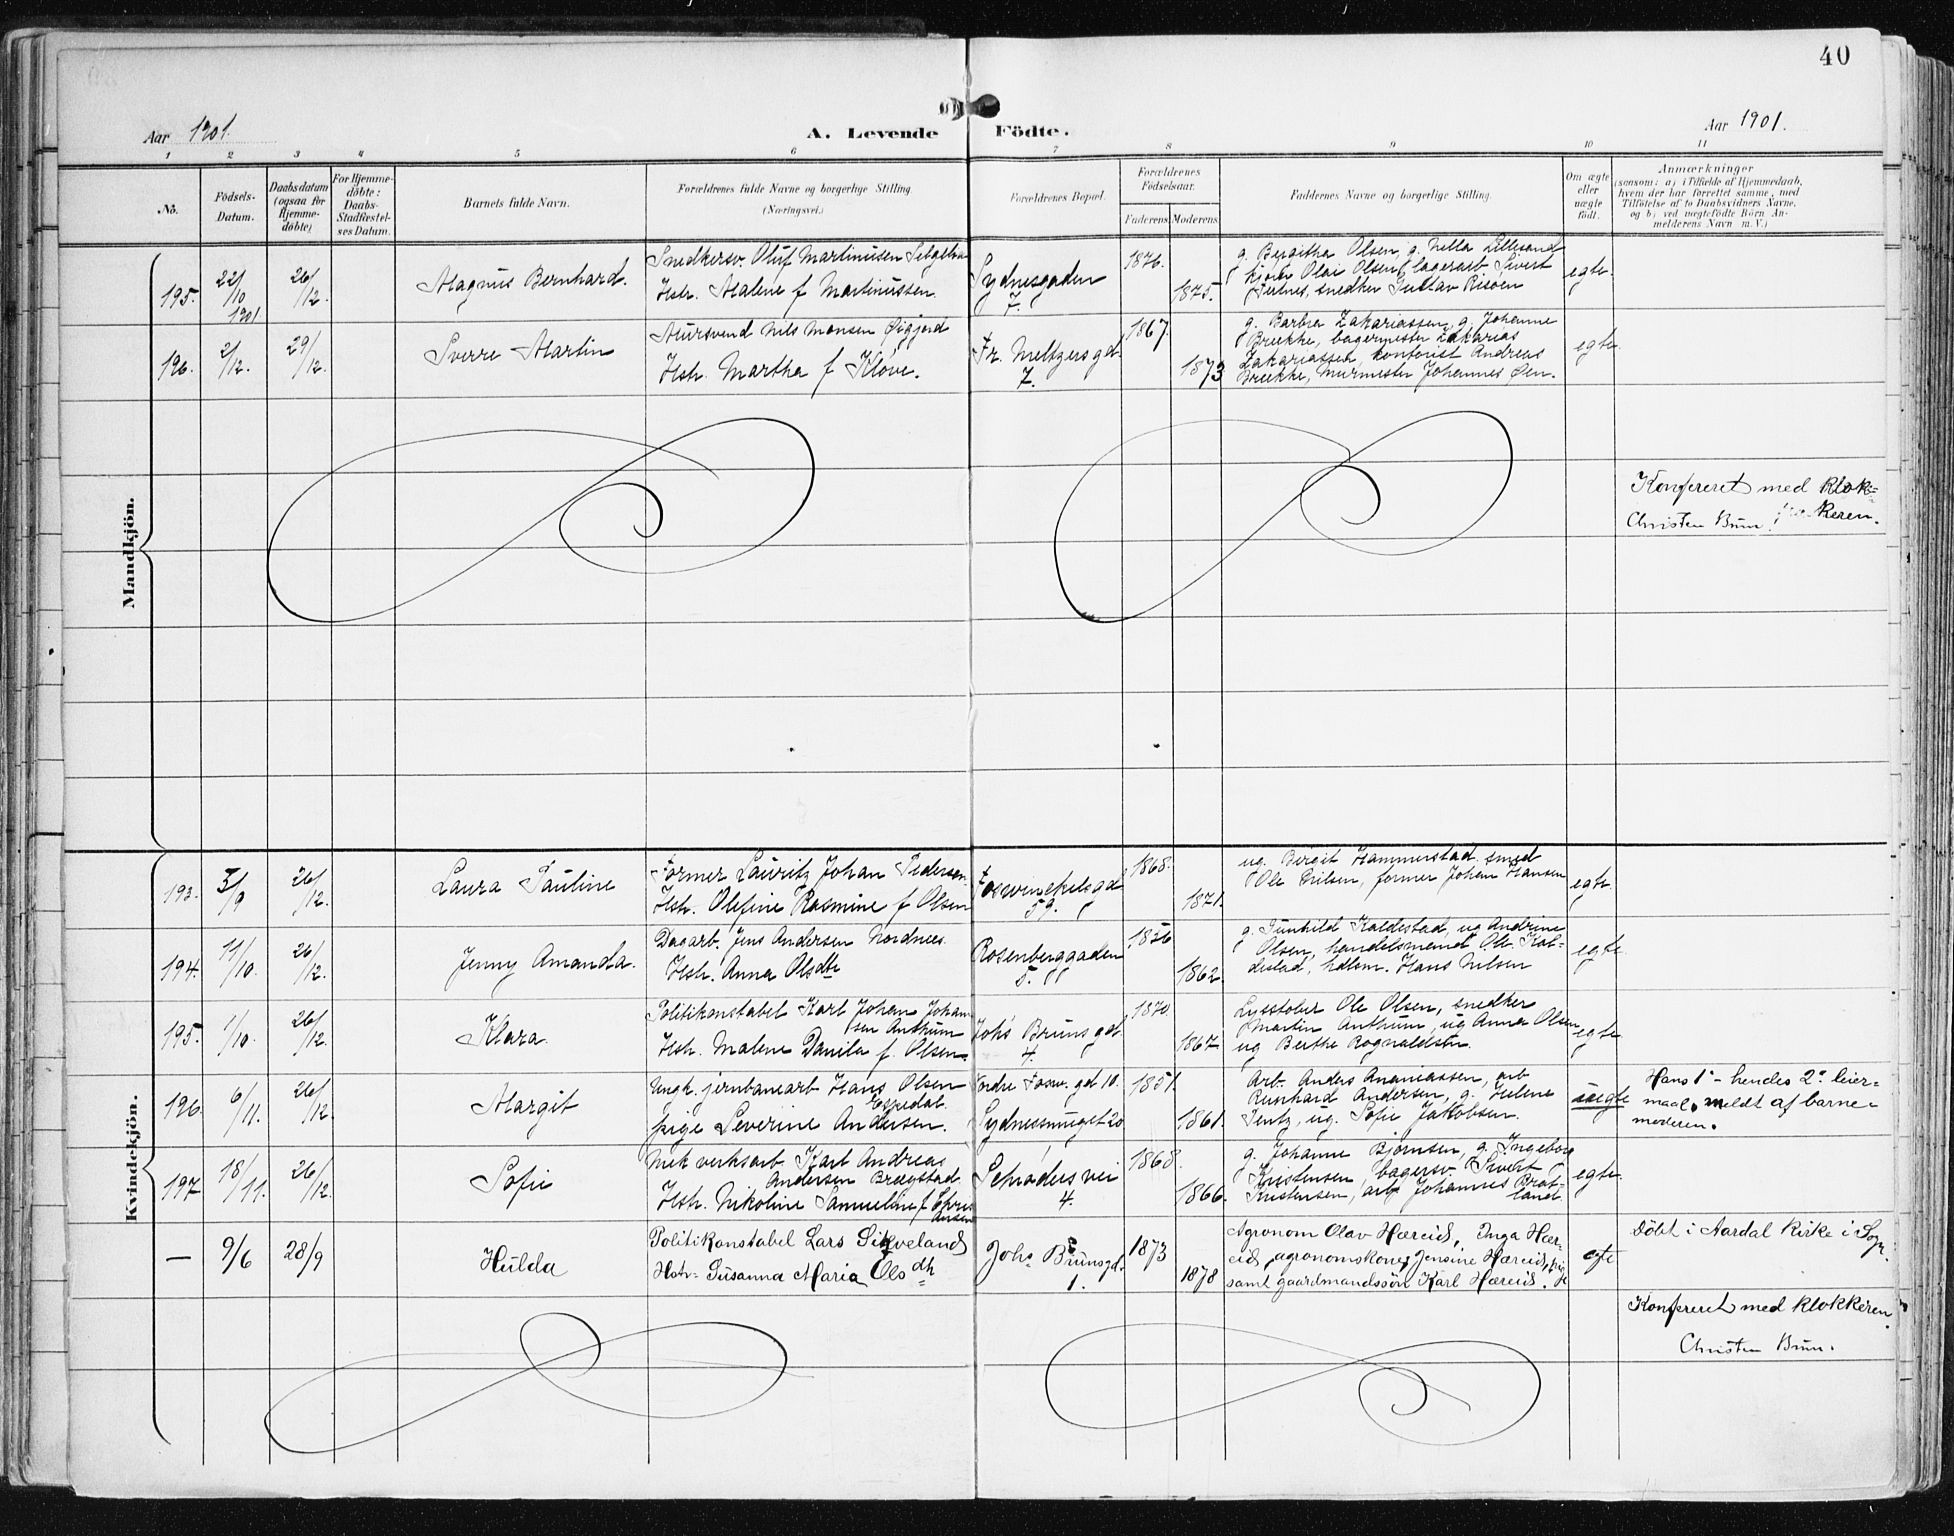 40
Aar 1901.
A. Levende Födte.
Aar 1901.
1 2 3 4 5 6 7 8 9 10 11
No.
Födsels-
Datum.
Daabsdatum
(ogsaa for
Hjemme-
döbte)
For Hjemme-
döbte:
Daabs-
Stadfæstel-
ses Datum.
Barnets fulde Navn.
Forældrenes fulde Navne og borgerlige Stilling.
(Næringsvei.)
Forældrenes Bopæl.
Forældrenes
Födselsaar.
Faderens Moderens
Faddernes Navne og borgerlige Stilling.
Om ægte
eller
uægte
födt.
Anmærkninger
(saasom: a) i Tilfælde af Hjemmedaab,
hvem der har forrettet samme, med
Tilföielse af to Daabsvidners Navne,
og b) ved uægtefödte Börn An-
melderens Navn m. V.)
Mandkjön.
195.
22/10
1901
26/12.
Magnus Bernhard.
Snedkersv. Oluf Martinusen
Hstr. Malene f Martinussen.
Sydnesgaden
7.
1876.
1875.
g. Bergitha Olsen, g. Nella Lillesand
Olai Olsen, lagerarb. Sivert
snedker Gustav
egte.
196.
2/12.
29/12.
Sverre Martin
Mursvend Nils Monsen
Hstr. Martha f Kløve.
Fr. Meltzersgd.
7.
1867.
1873
g. Barbra Zakariassen, g. Johanne
Brække, bagermester Zakarias
Zakariassen, kontorist Andreas
Brække, Murmester Johannes Øen.
egte.
Konfereret med klok-
keren.
Christen Brun.
Kvindekjön.
193.
3/9
26/12.
Laura Pauline
Former Lauritz Johan Pedersen.
Hstr. Olefine Rasmine f Olsen
59.
1868.
1871.
ug. Birgit Hammerstad, smed
Ole Nilsen, former Johan Hansen
egte.
194.
11/10.
26/12.
Jenny Amanda.
Dagarb. Jens Andersen Nordnees.
Hstr. Anna Olsdtr
Rosenberggaden
5.
1856
1862.
g. Gunhild Kaldestad, ug Andrine
Olsen, handelsmand Ole Kal-
destad, hdlsm. Hans Nilsen
egte.
195.
1/10.
26/12.
Klara.
Politikonstabel Karl Johan Johan-
sen Anthum
Hstr. Malene Danila f. Olsen.
Johs Brunsgd.
4.
1870
1867.
Lysstøber Ole Olsen, snedker
Martin Anthum, ug Anna Olsen
ug Berthe Rognaldsen.
egte.
196.
6/11.
26/12.
Margit
Ungk. jernbanearb Hans Olsen
Espedal.
pige Severine Andersen.
Nordre Fosw. gd 10.
Sydnessmuget 20
1851.
1861.
Arb. Anders Ananiassen, arb
Reinhard Andersen, g. Helene
Jentz, ug. Sofie Jakobsen.
uægte
Hans 1ste - hendes 2det leier-
maal, meldt af barne-
moderen.
197.
18/11.
26/12.
Sofie
Mek verksarb. Karl Andreas
Andersen
Hstr. Nikoline Samueline f
Schrøders vei
4.
1868.
1866.
g. Johanne Bjørnsen, g. Ingeborg
Kristensen, bagersv. Sivert
Kristensen, arb Johannes Brat-
land
egte.
—
9/6
28/9
Hulda
Politikonstabel Lars Sikveland
Hstr. Susanna Maria Olsdtr
Johs Brunsgd.
1.
1873
1878
Agronom Olav Hæreid, Inga Hær-
eid, agronomskone, Jensine Hæreid, pige
samt gaardmandssøn Karl Hæreid.
egte
Døbt i Aardal Kirke i Sogn.
Konfereret med klokkeren.
Christen Brun.